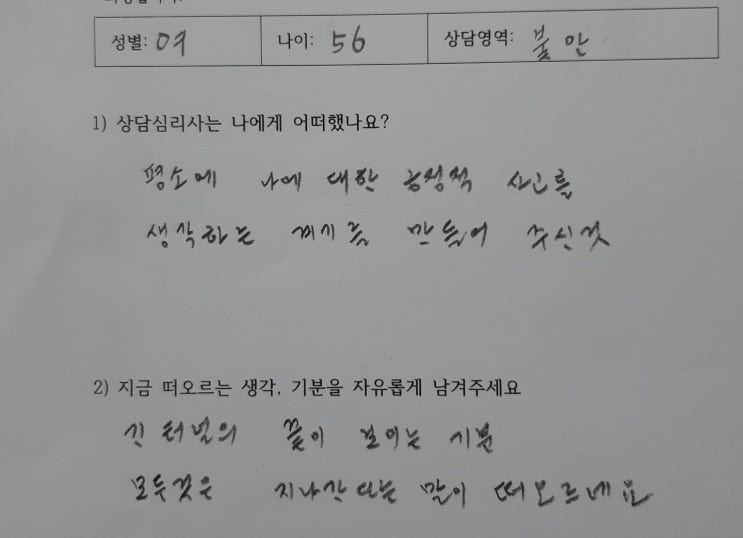 성별: 여 나이: 56 상담영역: 불안
1) 상담심리사는 나에게 어떠했나요?
평소에 나에 대한 긍정적 사고를
생각하는 계기를 만들어 주신것
2) 지금 떠오르는 생각, 기분을 자유롭게 남겨주세요
긴 터널의 끝이 보이는 기분
모든것은 지나간다는 말이 떠오르네요